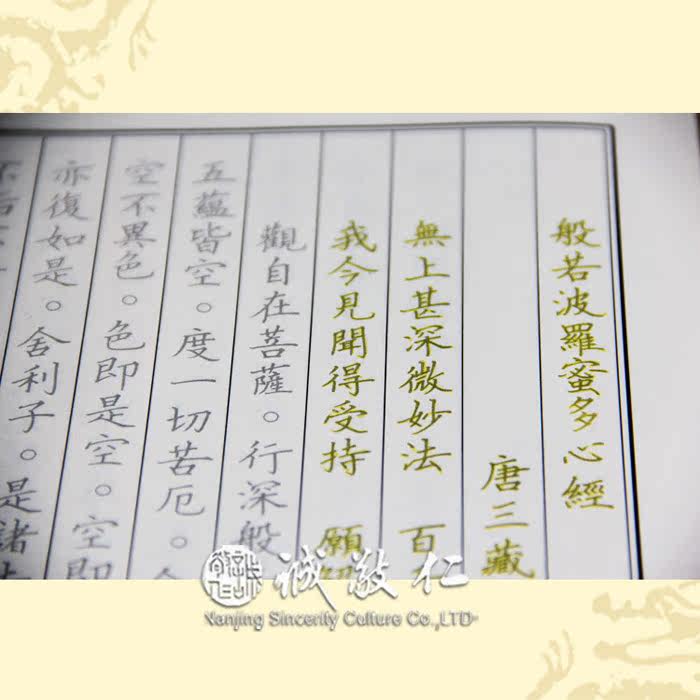 般若波羅蜜多心經
唐三藏
無上甚深微妙法 百
我今見聞得受持 願
觀自在菩薩。行深般
五蘊皆空。度一切苦厄。
空不異色。色即是空。空即
亦復如是。舍利子。是諸
誠敬仁
Nanjing Sincerity Culture Co.,LTD